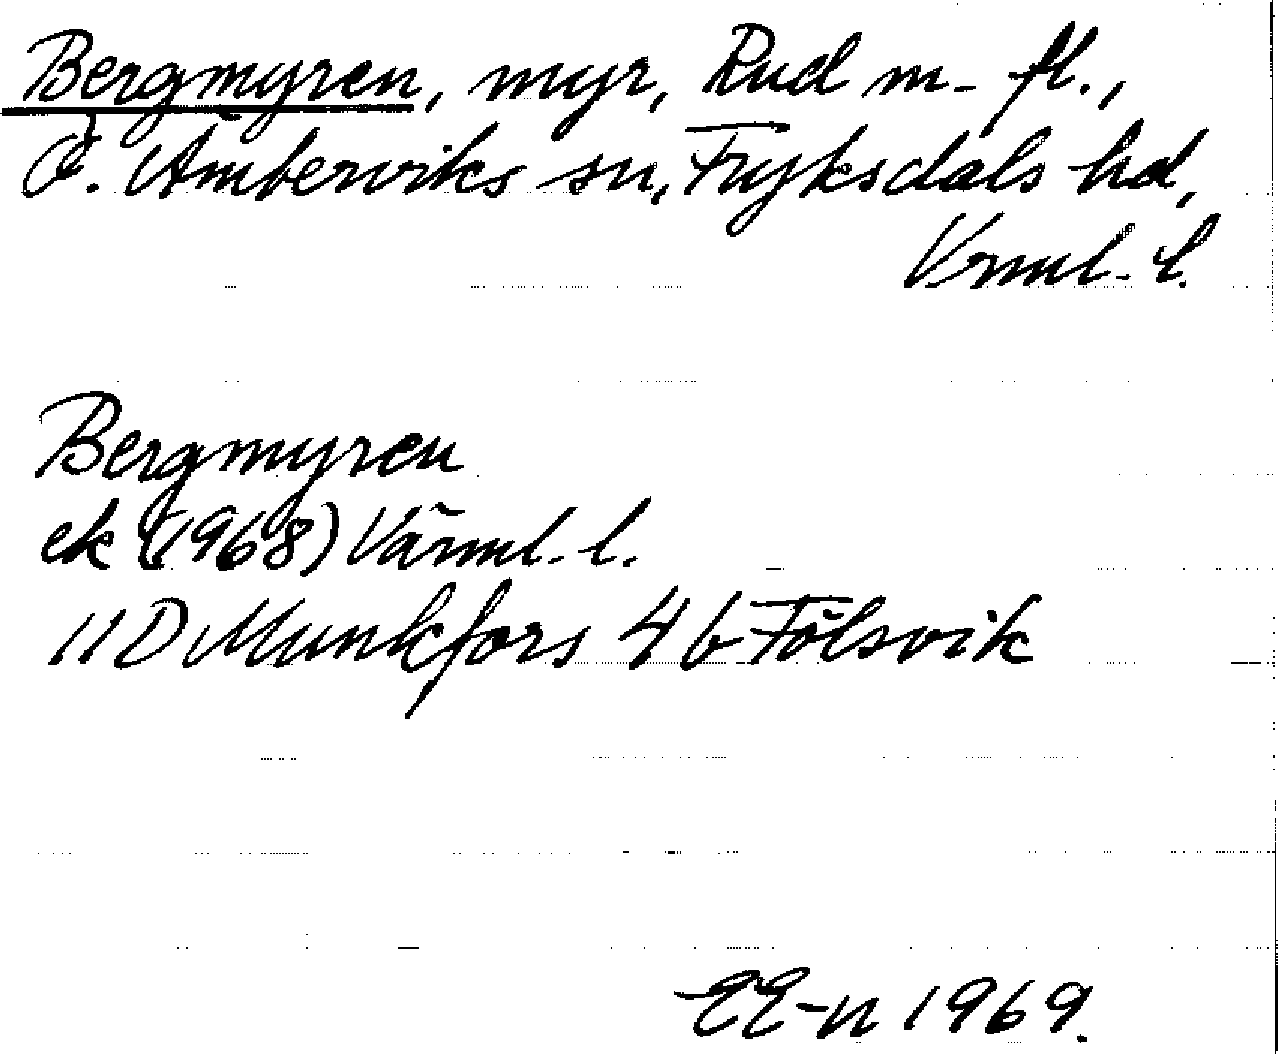 Bergmyren, myr, Rud m. fl.,
Ö. Ämterviks sn, Fryksdals hd,
Vrml. l.
Bergmyren
ek (1968) Värml. l.
11 D Munkfors 4 b Fölsvik
EE-n 1969.